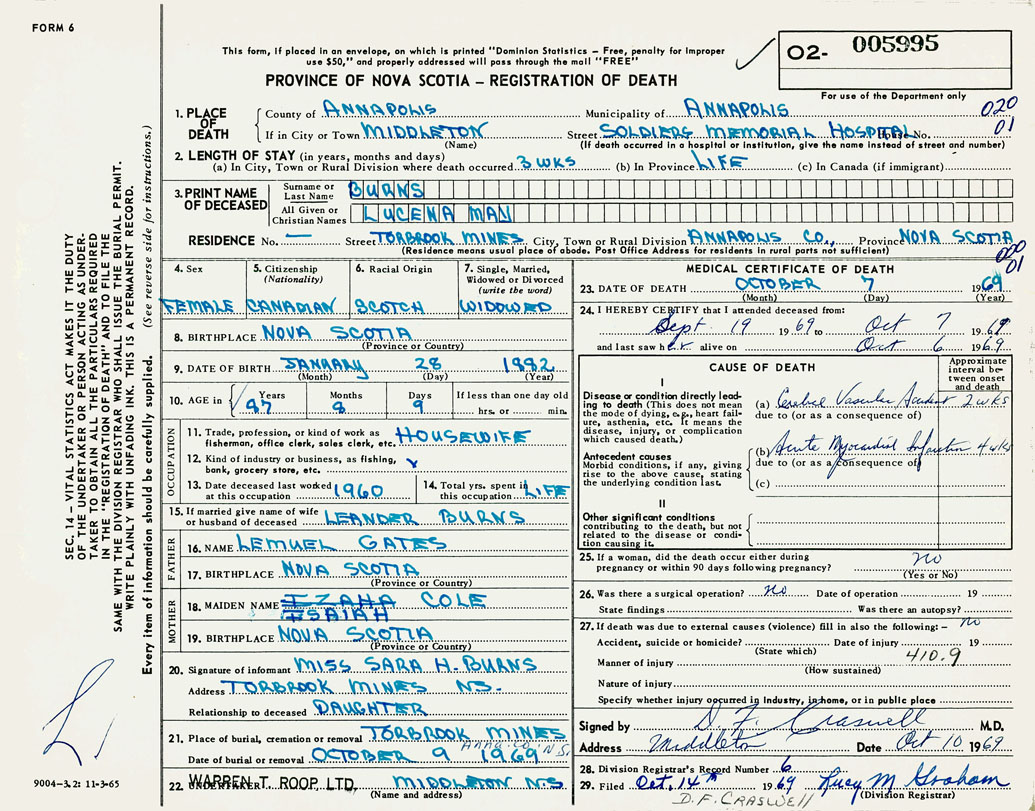 FORM 6
This form, if placed in an envelope, on which is printed "Dominion Statistics – Free, penalty for improper
use $50," and properly addressed will pass through the mail "FREE"
PROVINCE OF NOVA SCOTIA – REGISTRATION OF DEATH
O2- 005995
For use of the Department only
020
01
1. PLACE OF DEATH
County of ANNAPOLIS Municipality of ANNAPOLIS
If in City or Town MIDDLETON Street SOLDIERS MEMORIAL HOSPITAL House No.
(Name) (If death occurred in a hospital or institution, give the name instead of street and number)
2. LENGTH OF STAY (in years, months and days)
(a) In City, Town or Rural Division where death occurred 3 WKS (b) In Province LIFE (c) In Canada (if immigrant)
3. PRINT NAME OF DECEASED
Surname or Last Name BURNS
All Given or Christian Names LUCENA MAN
RESIDENCE No. — Street TORBROOK MINES City, Town or Rural Division ANNAPOLIS CO., Province NOVA SCOTIA
(Residence means usual place of abode. Post Office Address for residents in rural parts not sufficient)
000
01
4. Sex FEMALE
5. Citizenship (Nationality) CANADIAN
6. Racial Origin SCOTCH
7. Single, Married, Widowed or Divorced (write the word) WIDOWED
8. BIRTHPLACE NOVA SCOTIA
(Province or Country)
9. DATE OF BIRTH JANUARY 28 1882
(Month) (Day) (Year)
10. AGE in Years 87 Months 8 Days 9 If less than one day old hrs. or min.
OCCUPATION
11. Trade, profession, or kind of work as fisherman, office clerk, sales clerk, etc. HOUSEWIFE
12. Kind of industry or business, as fishing, bank, grocery store, etc.
13. Date deceased last worked at this occupation 1960
14. Total yrs. spent in this occupation LIFE
15. If married give name of wife or husband of deceased LEANDER BURNS
FATHER
16. NAME LEMUEL GATES
17. BIRTHPLACE NOVA SCOTIA
(Province or Country)
MOTHER
18. MAIDEN NAME COLE
ISAIAH
19. BIRTHPLACE NOVA SCOTIA
(Province or Country)
20. Signature of informant MISS SARA H. BURNS
Address TORBROOK MINES NS.
Relationship to deceased DAUGHTER
21. Place of burial, cremation or removal TORBROOK MINES
Anna. Co. N.S.
Date of burial or removal OCTOBER 9 1969
22. UNDERTAKER WARREN T. ROOP, LTD. MIDDLETON N.S.
(Name and address)
MEDICAL CERTIFICATE OF DEATH
23. DATE OF DEATH OCTOBER 7 1969
(Month) (Day) (Year)
24. I HEREBY CERTIFY that I attended deceased from:
Sept 19 1969 to Oct 7 1969
and last saw her alive on Oct 6 1969
CAUSE OF DEATH
Approximate interval between onset and death
I
Disease or condition directly leading to death (This does not mean the mode of dying, e.g., heart failure, asthenia, etc. It means the disease, injury, or complication which caused death.)
(a) Cerebral Vascular Accident 2 wks
due to (or as a consequence of)
Antecedent causes
Morbid conditions, if any, giving rise to the above cause, stating the underlying condition last.
(b) Acute Myocardial Infarction 4 wks
due to (or as a consequence of)
(c)
II
Other significant conditions contributing to the death, but not related to the disease or condition causing it.
25. If a woman, did the death occur either during pregnancy or within 90 days following pregnancy? no
(Yes or No)
26. Was there a surgical operation? no Date of operation 19
State findings Was there an autopsy? no
27. If death was due to external causes (violence) fill in also the following: –
Accident, suicide or homicide? Date of injury 19
(State which) 410.9
Manner of injury
(How sustained)
Nature of injury
Specify whether injury occurred in industry, in home, or in public place
Signed by D. F. Craswell M.D.
Address Middleton Date Oct 10 1969
28. Division Registrar's Record Number 6
29. Filed Oct. 14th 1969 Lucy M Graham
(Division Registrar)
D.F. CRASWELL
SEC. 14 – VITAL STATISTICS ACT MAKES IT THE DUTY
OF THE UNDERTAKER OR PERSON ACTING AS UNDER-
TAKER TO OBTAIN ALL THE PARTICULARS REQUIRED
IN THE "REGISTRATION OF DEATH" AND TO FILE THE
SAME WITH THE DIVISION REGISTRAR WHO SHALL ISSUE THE BURIAL PERMIT.
WRITE PLAINLY WITH UNFADING INK. THIS IS A PERMANENT RECORD.
Every item of information should be carefully supplied. (See reverse side for instructions.)
9004–3.2: 11-3-65